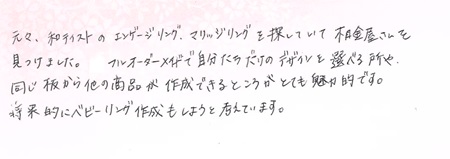 元々、和テイストのエンゲージリング、マリッジリングを探していて杢目金屋さんを
見つけました。 フルオーダーメイドで自分たちだけのデザインを選べる所や、
同じ板から他の商品が作成できるところがとても魅力的です。
将来的にベビーリング作成もしようと考えています。